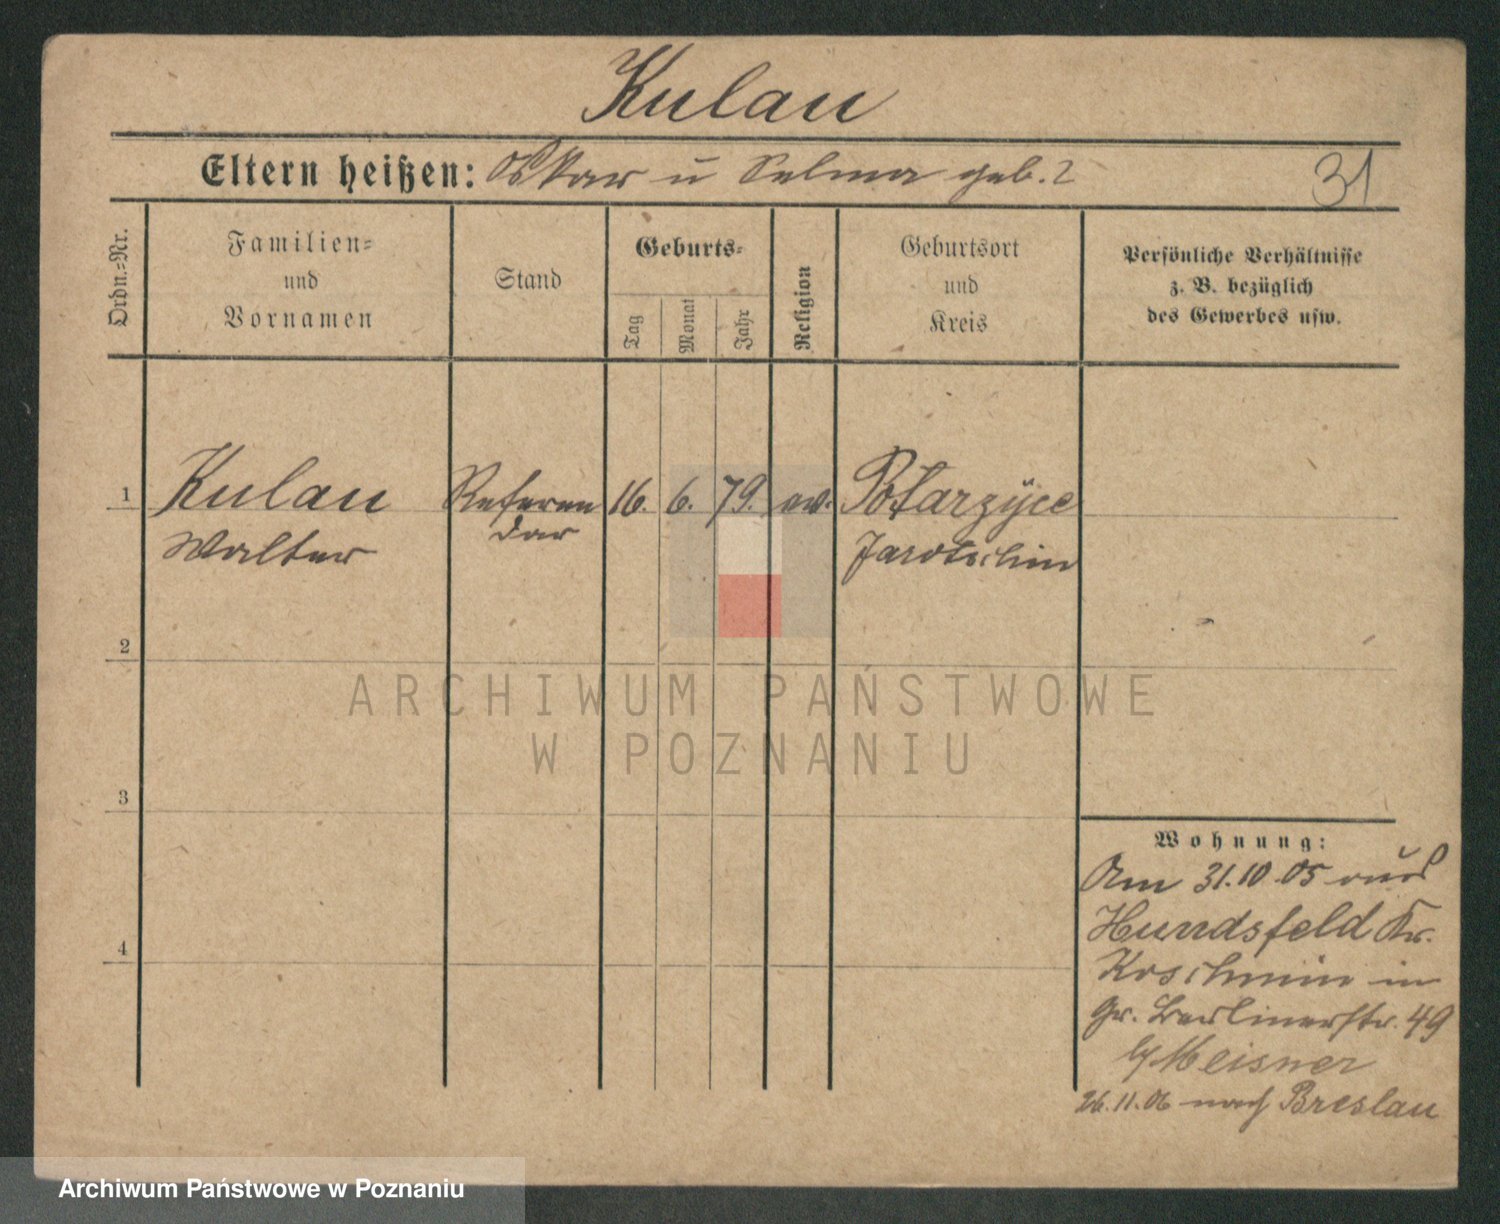 Kulau
Eltern heißen: Oskar u Selma geb. ?
31
Ordn.=Nr.
Familien=
und
Vornamen
Stand
Geburts=
Tag
Monat
Jahr
Religion
Geburtsort
und
Kreis
Persönliche Verhältnisse
z. B. bezüglich
des Gewerbes usw.
1
Kulau
Walter
Referen
dar
16.
6.
79.
ev.
Potarzyce
Jarotschin
2
3
4
ARCHIWUM PAŃSTWOWE
W POZNANIU
Wohnung:
Am 31.10.05 aus
Hundsfeld Kr.
Koschmin in
Gr. Berlinerstr. 49
b/ Meisner
26.11.06 nach Breslau
Archiwum Państwowe w Poznaniu